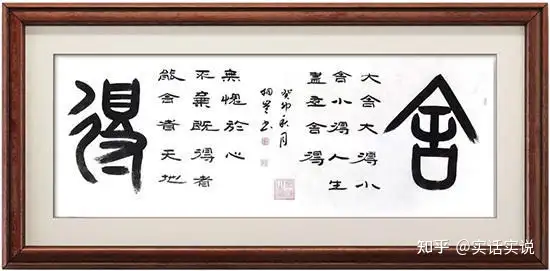 舍
大舍大得小
舍小得人生
盡在舍得
癸卯秋月
能舍者天地
不棄既得者
無愧於心
得
知乎 @实话实说